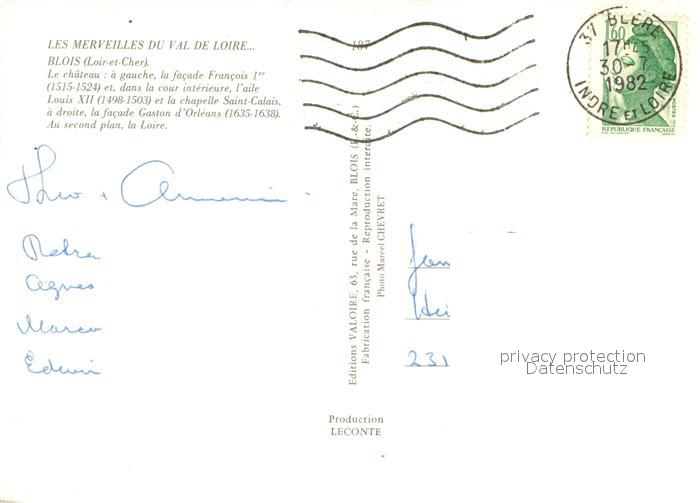 LES MERVEILLES DU VAL DE LOIRE...
BLOIS (Loir-et-Cher).
Le château : à gauche, la façade François 1er
(1515-1524) et, dans la cour intérieure, l'aile
Louis XII (1498-1503) et la chapelle Saint-Calais,
à droite, la façade Gaston d'Orléans (1635-1638).
Au second plan, la Loire.
187
1,60
37 BLERE
17H15
30-7
1982
INDRE ET LOIRE
POSTES
REPUBLIQUE FRANÇAISE
Petra
Agnes
Marco
Edwin
Editions VALOIRE, 63, rue de la Mare, BLOIS (L.-&-C.)
Fabrication française - Reproduction interdite.
Photo Marcel CHEVRET
231
privacy protection
Datenschutz
Production
LECONTE